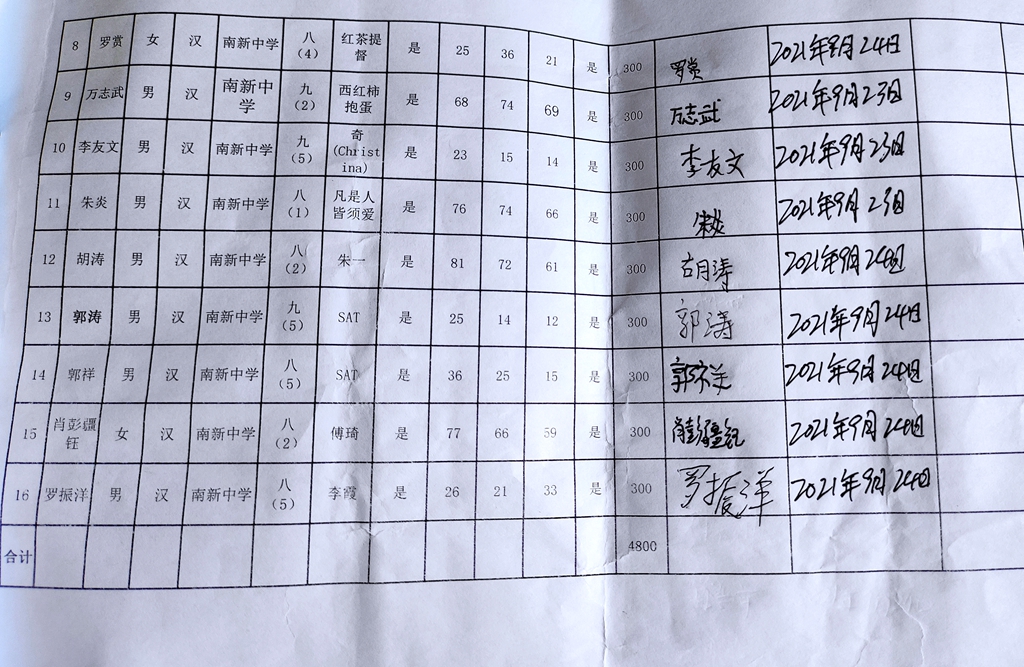 8 罗赏 女 汉 南新中学 八（4） 红茶提督 是 25 36 21 是 300 罗赏 2021年9月24日
9 万志武 男 汉 南新中学 九（2） 西红柿抱蛋 是 68 74 69 是 300 万志武 2021年9月23日
10 李友文 男 汉 南新中学 九（5） 奇(Christina) 是 23 15 14 是 300 李友文 2021年9月23日
11 朱炎 男 汉 南新中学 八（1） 凡是人皆须爱 是 76 74 66 是 300 朱炎 2021年9月23日
12 胡涛 男 汉 南新中学 八（2） 朱一 是 81 72 61 是 300 胡涛 2021年9月24日
13 郭涛 男 汉 南新中学 九（5） SAT 是 25 14 12 是 300 郭涛 2021年9月24日
14 郭祥 男 汉 南新中学 八（5） SAT 是 36 25 15 是 300 郭祥 2021年9月24日
15 肖彭疆钰 女 汉 南新中学 八（2） 傅琦 是 77 66 59 是 300 肖彭疆钰 2021年9月24日
16 罗振洋 男 汉 南新中学 八（5） 李霞 是 26 21 33 是 300 罗振洋 2021年9月24日
合计 4800